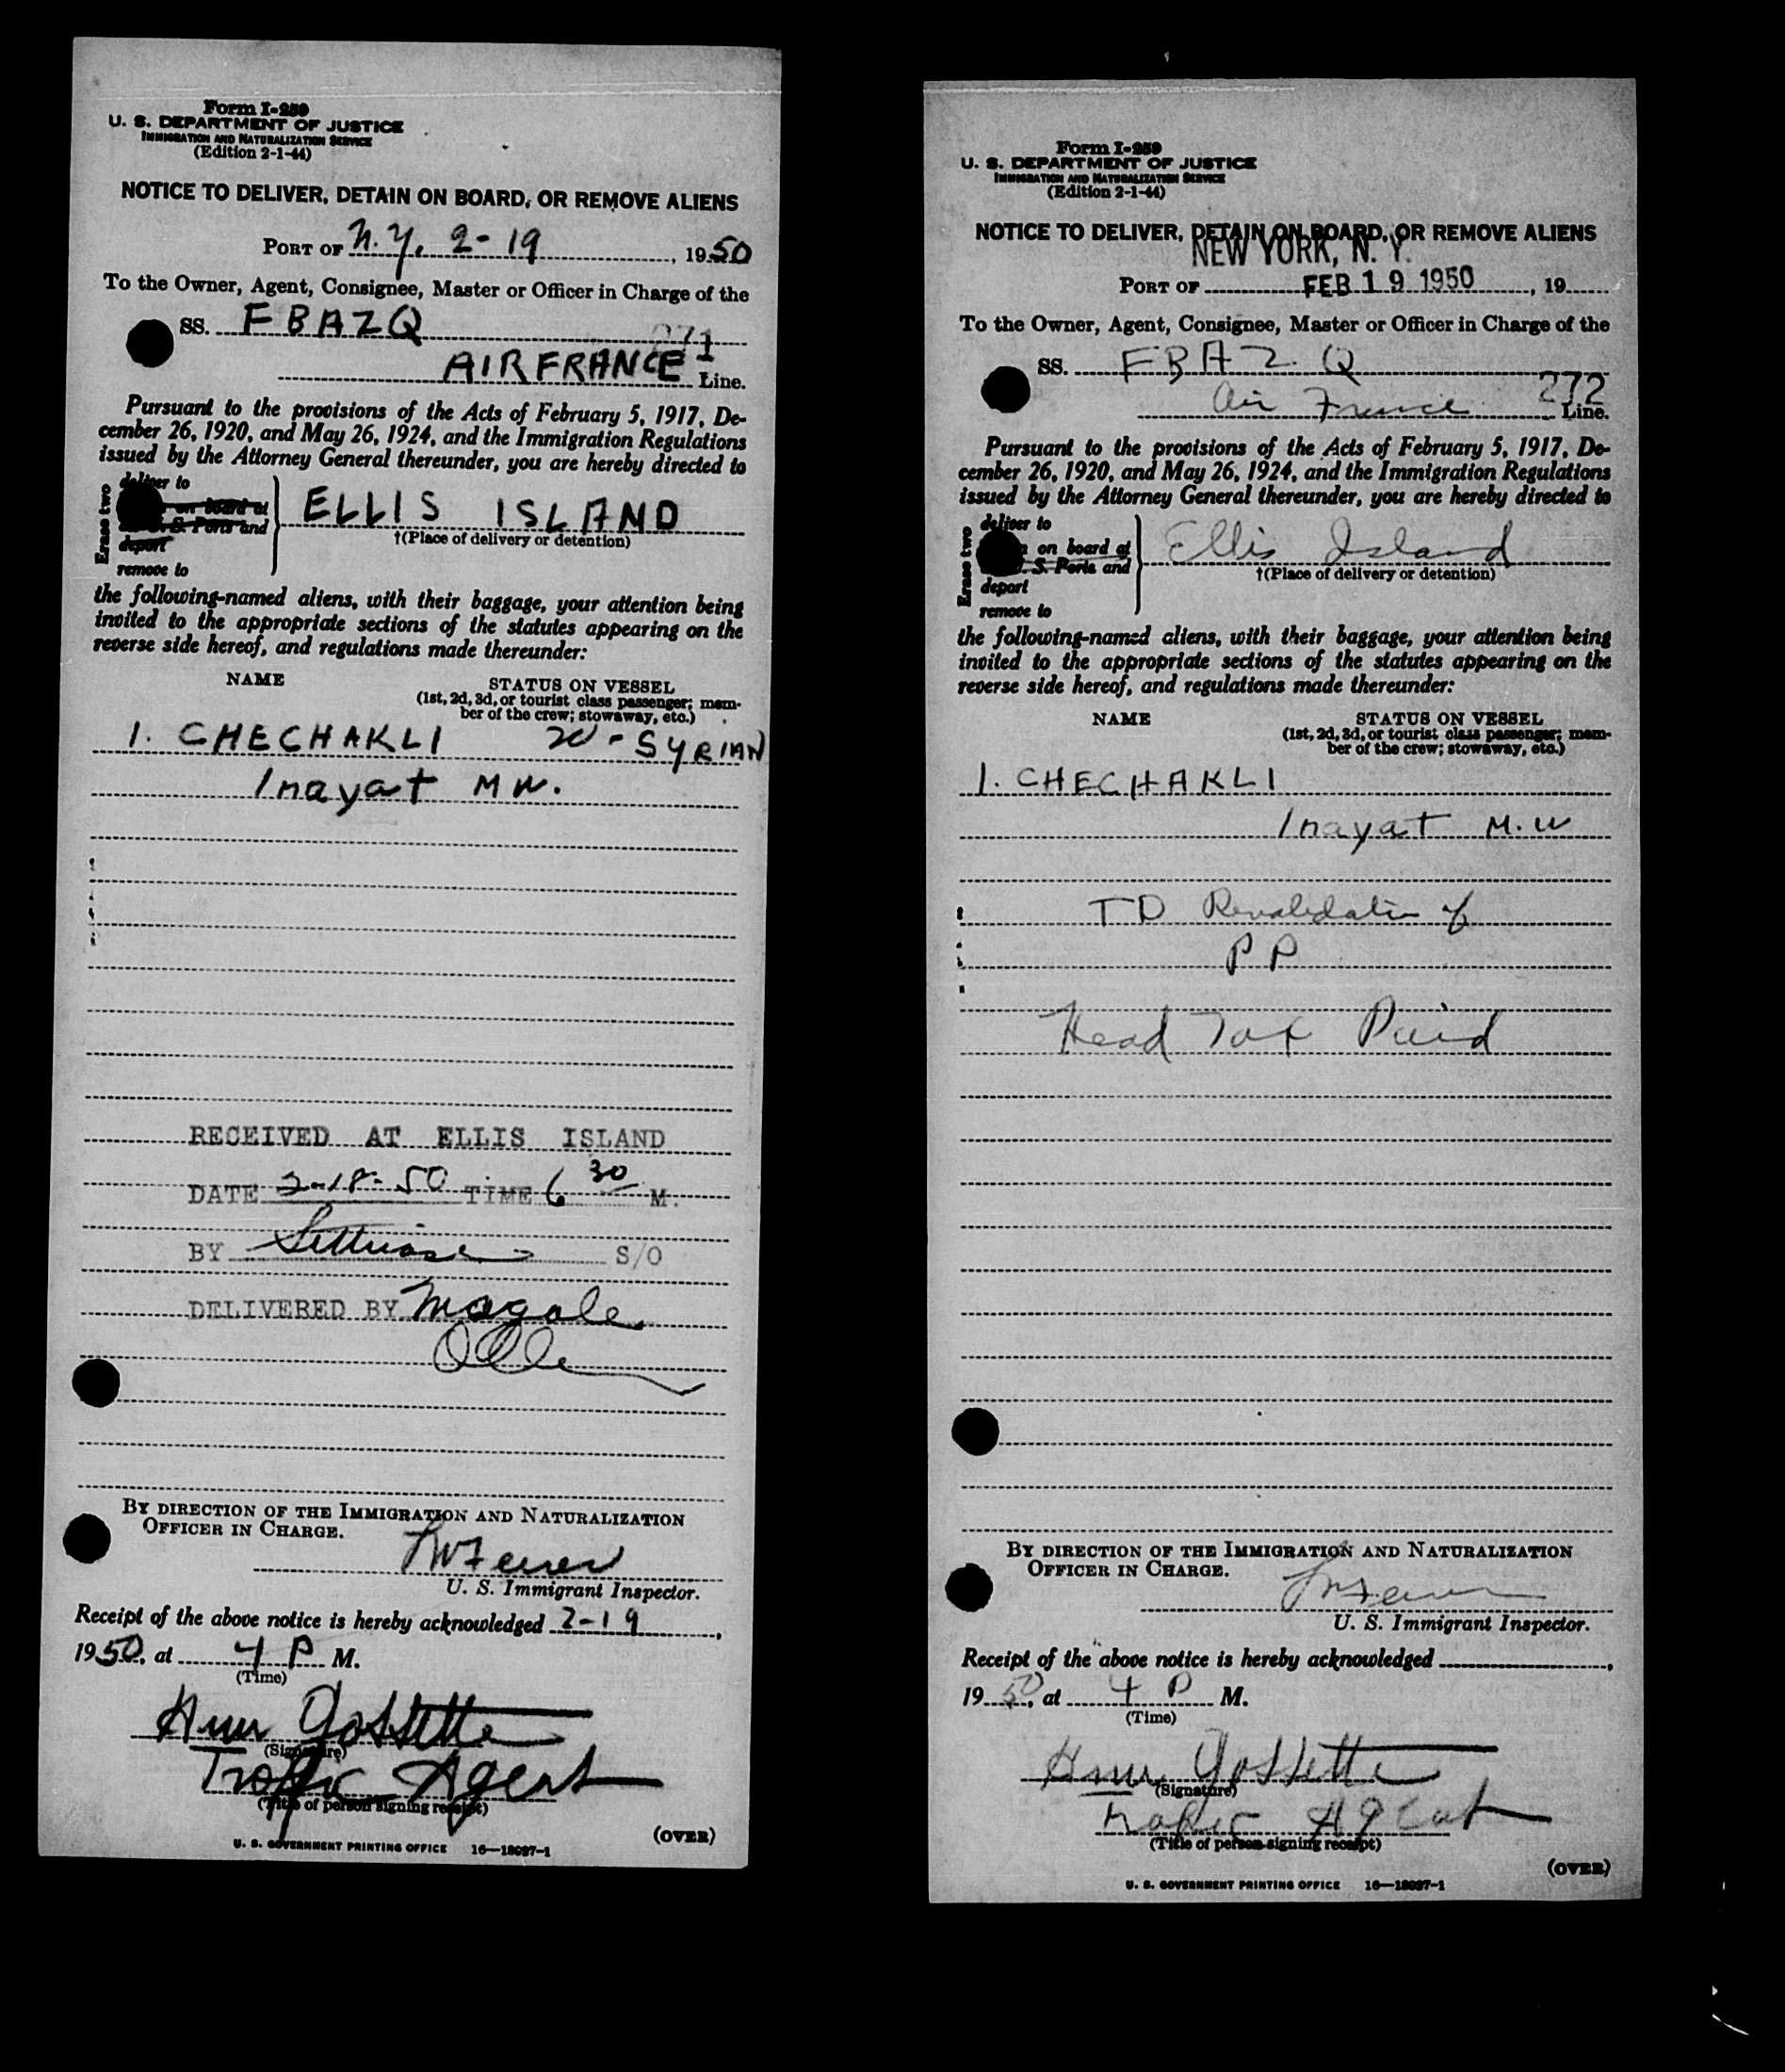 Form I-259
U. S. DEPARTMENT OF JUSTICE
IMMIGRATION AND NATURALIZATION SERVICE
(Edition 2-1-44)
NOTICE TO DELIVER, DETAIN ON BOARD, OR REMOVE ALIENS
PORT OF N.Y. 2-19, 1950
To the Owner, Agent, Consignee, Master or Officer in Charge of the
SS. FBAZQ 271
AIR FRANCE Line.
Pursuant to the provisions of the Acts of February 5, 1917, De-
cember 26, 1920, and May 26, 1924, and the Immigration Regulations
issued by the Attorney General thereunder, you are hereby directed to
Erase two
deliver to
on board at
S. Ports and
deport
remove to
ELLIS ISLAND
†(Place of delivery or detention)
the following-named aliens, with their baggage, your attention being
invited to the appropriate sections of the statutes appearing on the
reverse side hereof, and regulations made thereunder:
NAME STATUS ON VESSEL
(1st, 2d, 3d, or tourist class passenger; mem-
ber of the crew; stowaway, etc.)
1. CHECHAKLI - SYRIAN
Inayat M W.
RECEIVED AT ELLIS ISLAND
DATE 2-18-50 TIME 6 30 M.
BY S/O
DELIVERED BY
BY DIRECTION OF THE IMMIGRATION AND NATURALIZATION
OFFICER IN CHARGE.
U. S. Immigrant Inspector.
Receipt of the above notice is hereby acknowledged 2-19,
1950, at 4 P M.
(Time)
Gossette
(Signature)
Traffic Agent
(Title of person signing receipt)
(OVER)
U. S. GOVERNMENT PRINTING OFFICE 16—18027-1
Form I-259
U. S. DEPARTMENT OF JUSTICE
IMMIGRATION AND NATURALIZATION SERVICE
(Edition 2-1-44)
NOTICE TO DELIVER, DETAIN ON BOARD, OR REMOVE ALIENS
NEW YORK, N. Y.
PORT OF FEB 19 1950, 19
To the Owner, Agent, Consignee, Master or Officer in Charge of the
SS. FBAZQ
Air France 272 Line.
Pursuant to the provisions of the Acts of February 5, 1917, De-
cember 26, 1920, and May 26, 1924, and the Immigration Regulations
issued by the Attorney General thereunder, you are hereby directed to
Erase two
deliver to
on board at
S. Ports and
deport
remove to
Ellis Island
†(Place of delivery or detention)
the following-named aliens, with their baggage, your attention being
invited to the appropriate sections of the statutes appearing on the
reverse side hereof, and regulations made thereunder:
NAME STATUS ON VESSEL
(1st, 2d, 3d, or tourist class passenger; mem-
ber of the crew; stowaway, etc.)
1. CHECHAKLI
Inayat M. W
TD Revalidation of
PP
Head Tax Paid
BY DIRECTION OF THE IMMIGRATION AND NATURALIZATION
OFFICER IN CHARGE.
U. S. Immigrant Inspector.
Receipt of the above notice is hereby acknowledged ,
1950, at 4 P M.
(Time)
Gossette
(Signature)
Traffic Agent
(Title of person signing receipt)
(OVER)
U. S. GOVERNMENT PRINTING OFFICE 16—18027-1